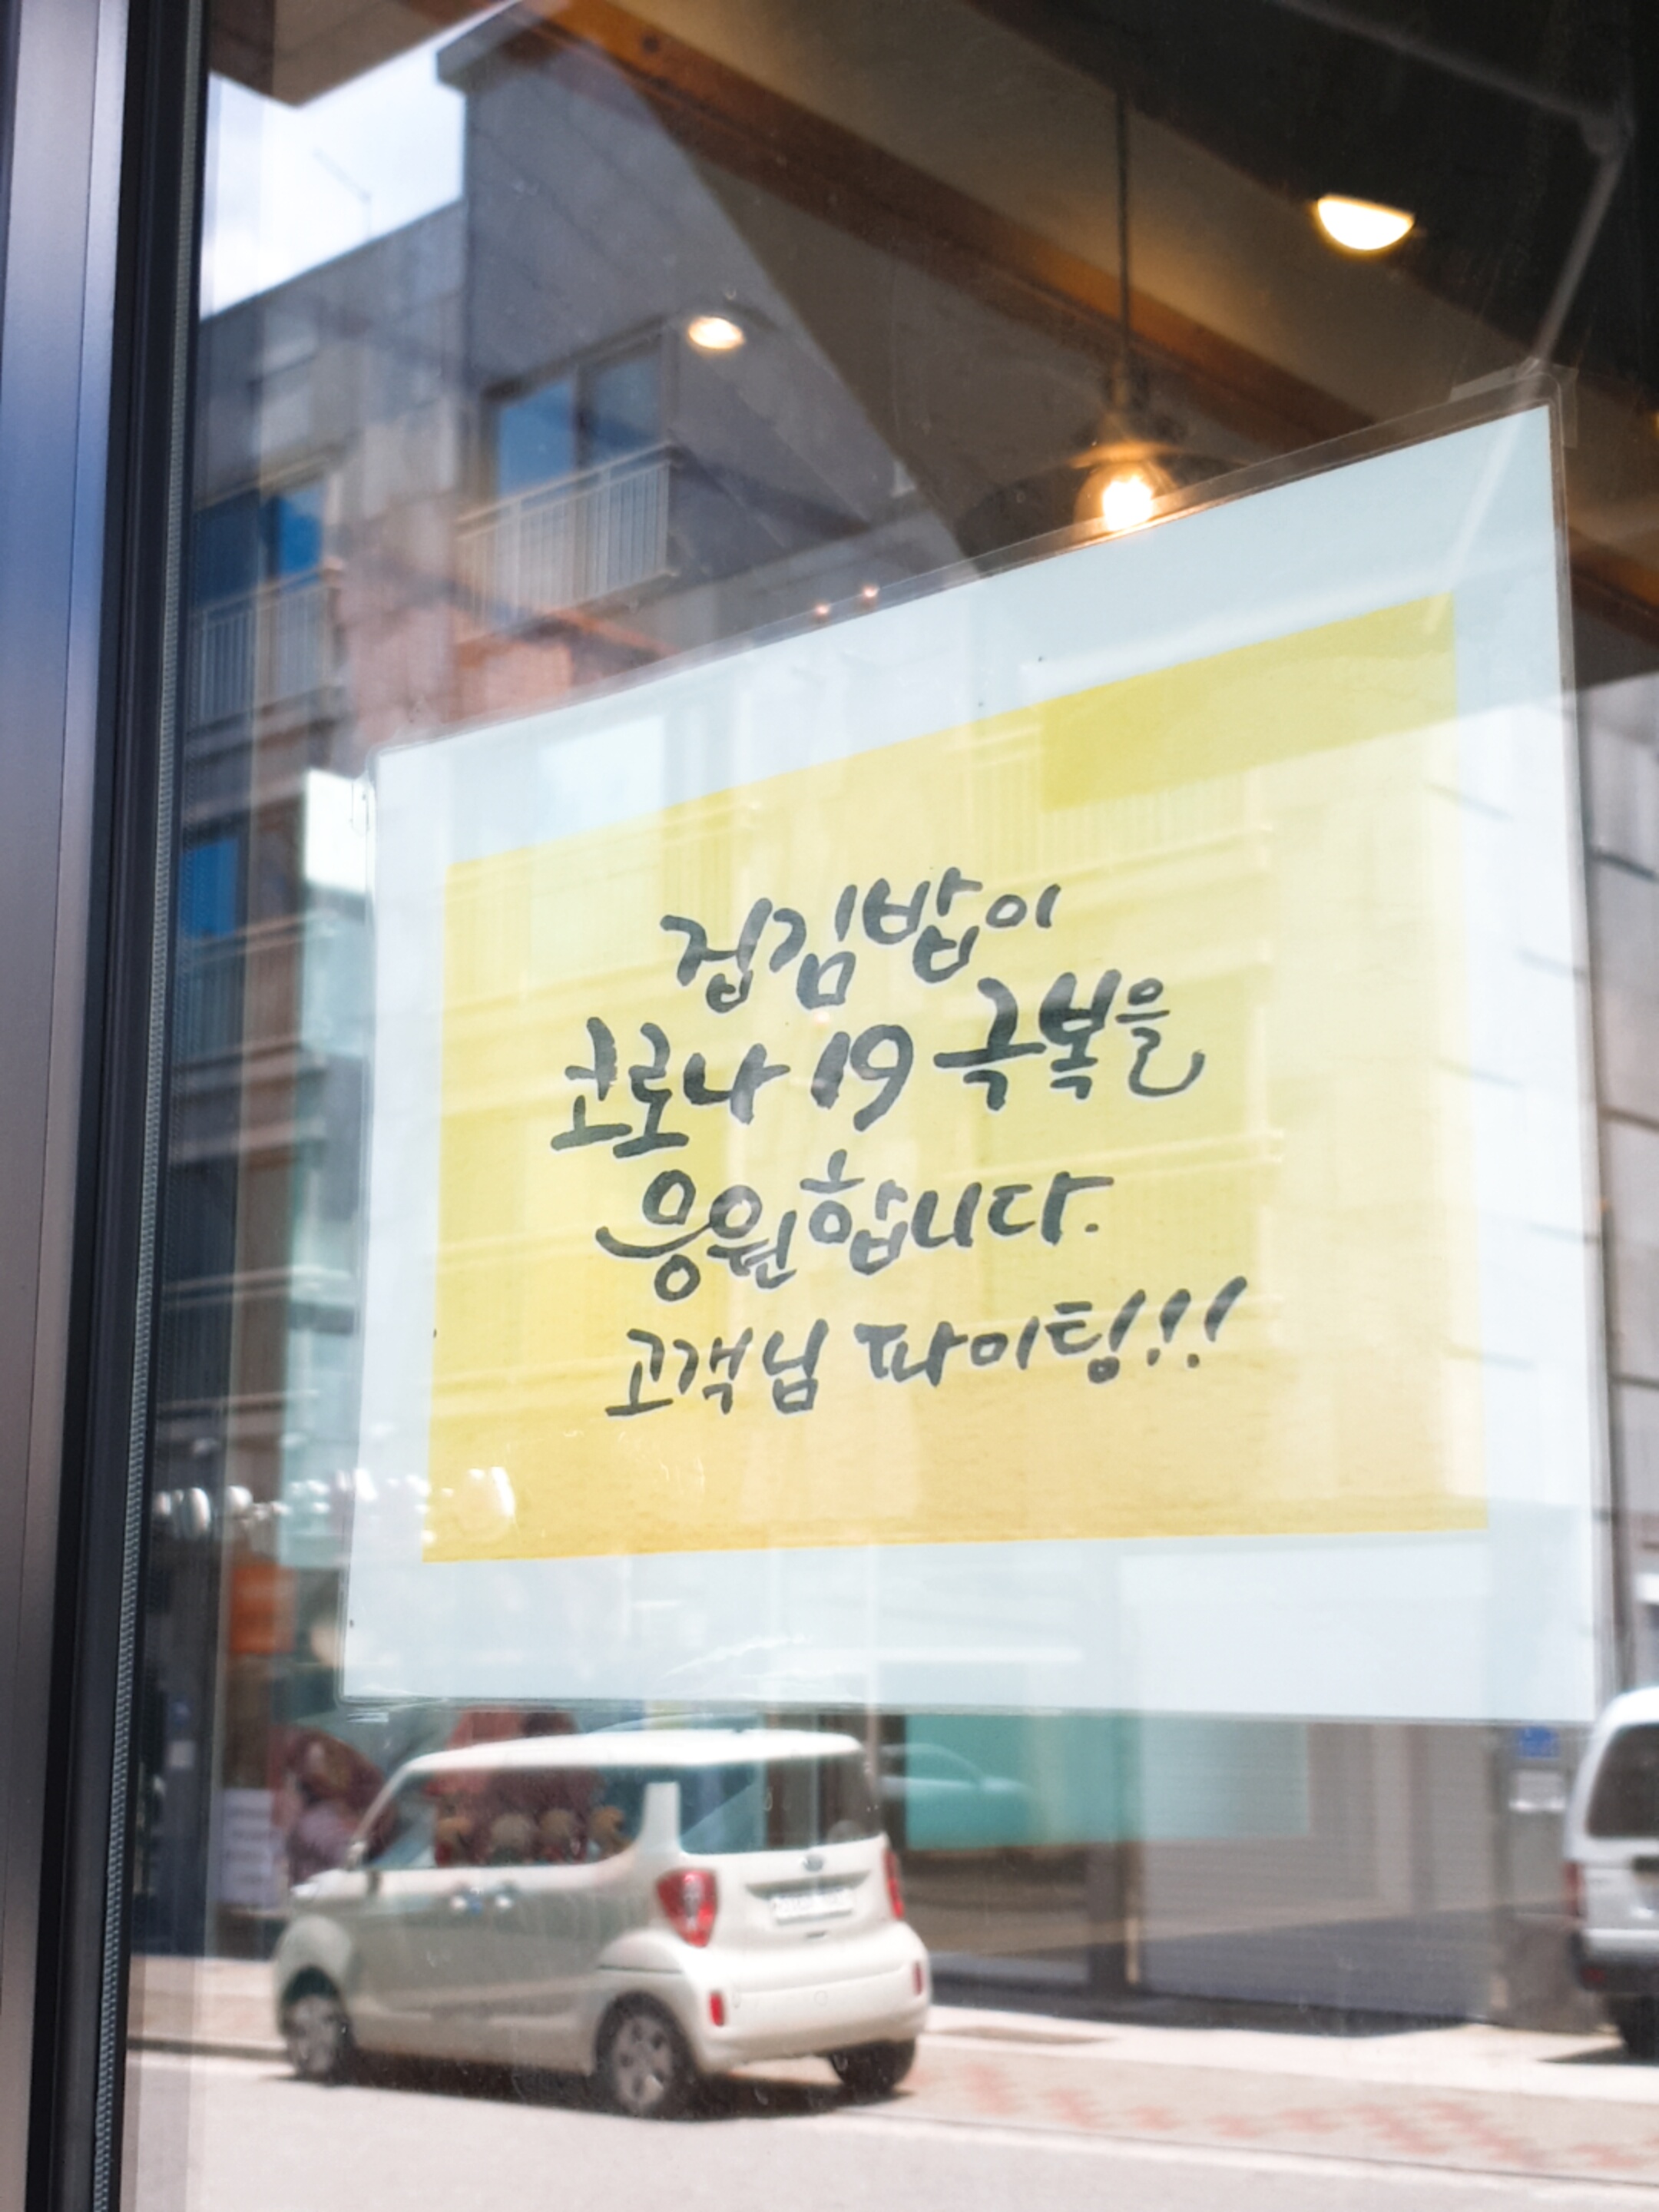 집김밥이
코로나 19 극복을
응원합니다.
고객님 파이팅!!!